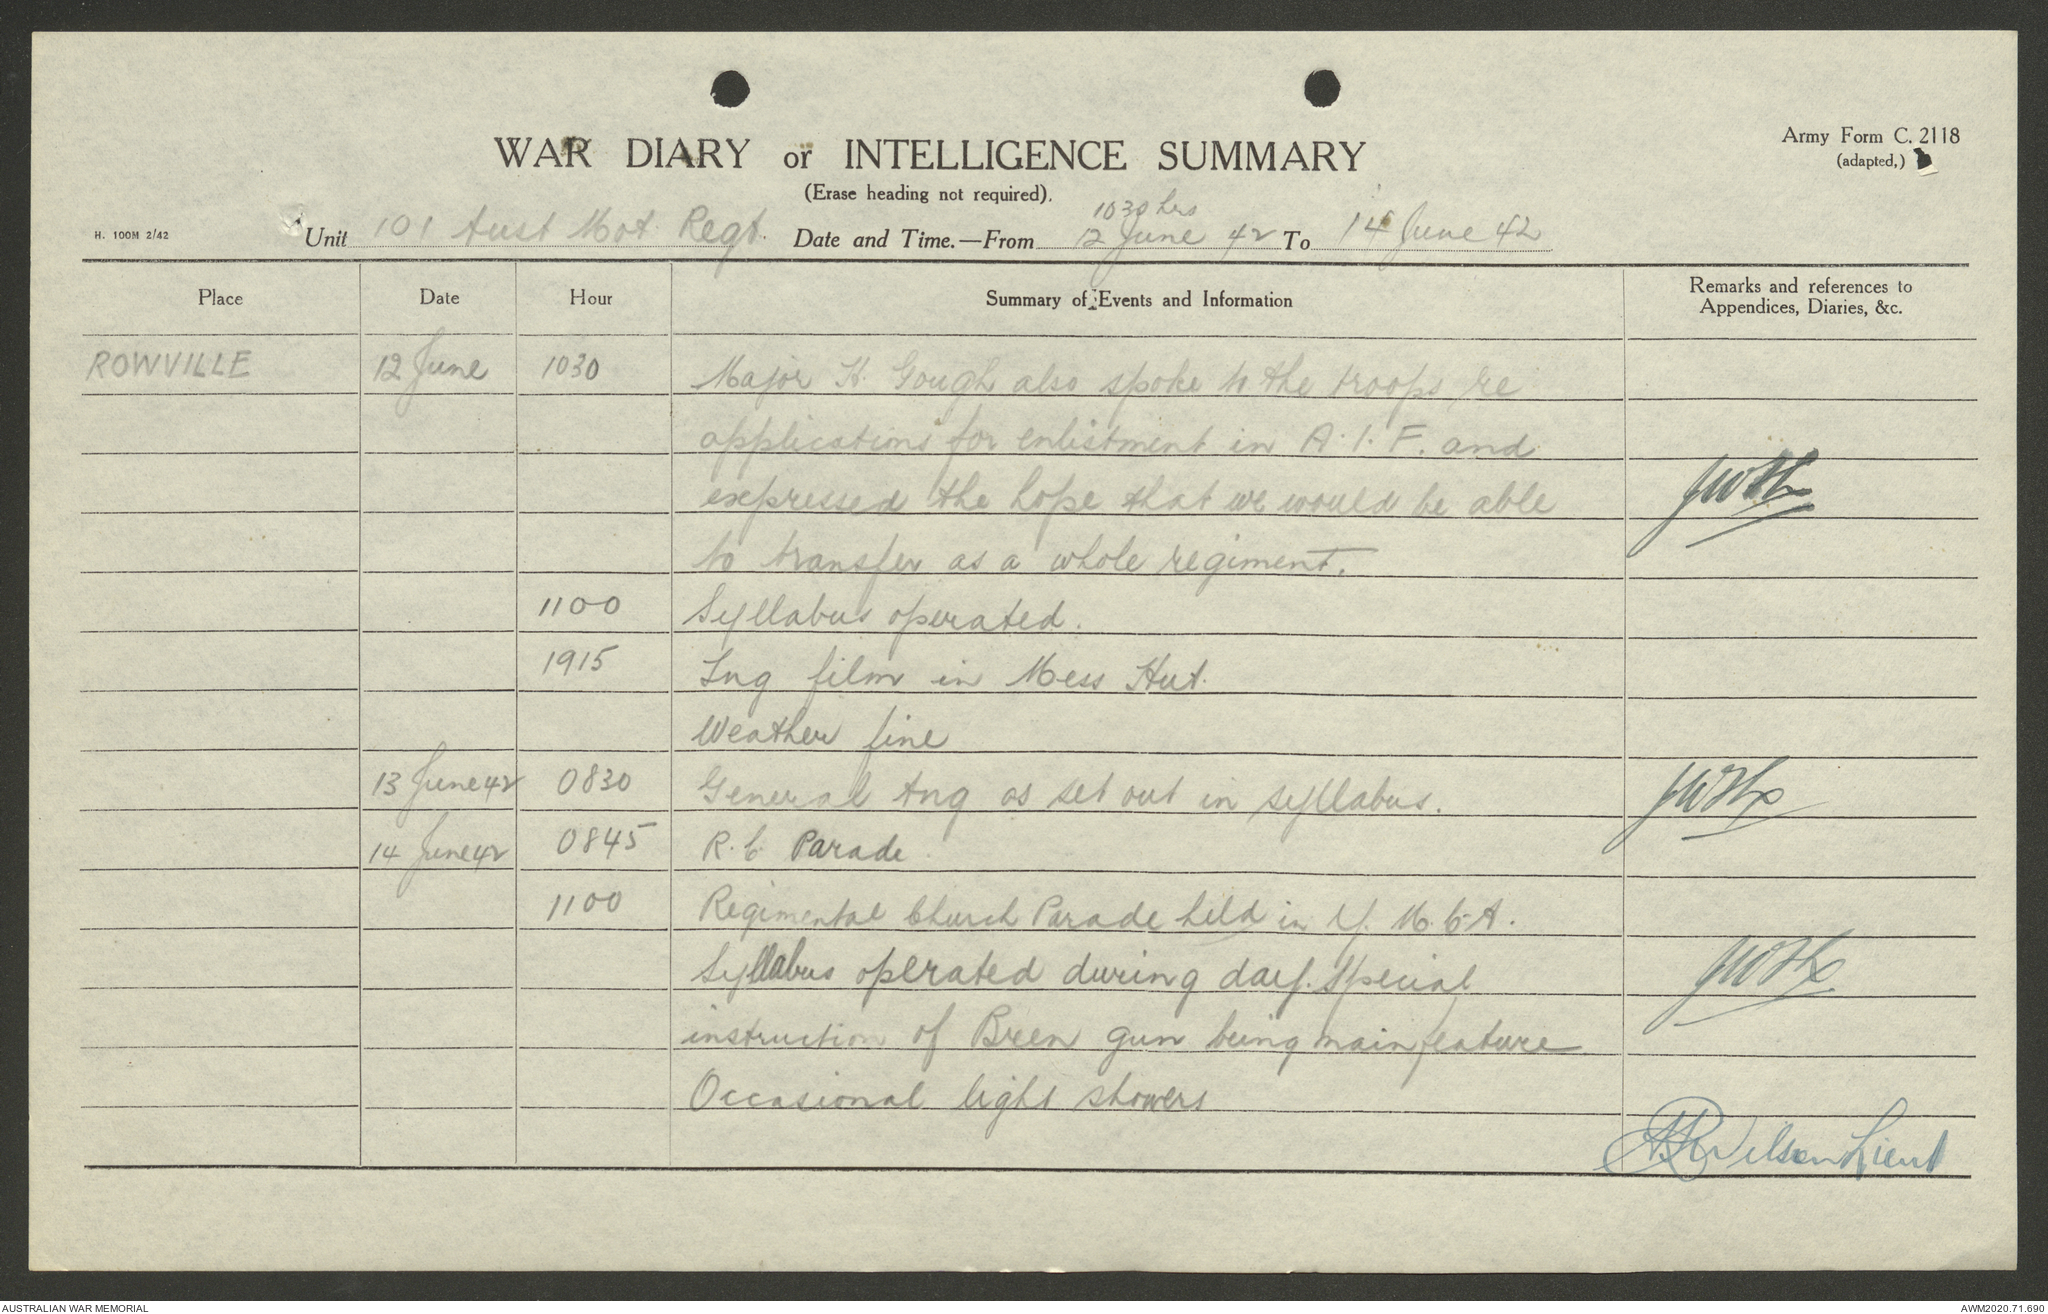 WAR DIARY or INTELLIGENCE SUMMARY
(Erase heading not required).
Army Form C. 2118
(adapted,)
H. 100M 2/42
Unit 101 Aust Mot Regt. Date and Time.—From 1030 hrs 12 June 42 To 14 June 42
Place Date Hour Summary of Events and Information Remarks and references to
Appendices, Diaries, &c.
ROWVILLE 12 June 1030 Major H. Gough also spoke to the troops re
applications for enlistment in A.I.F. and
expressed the hope that we would be able
to transfer as a whole regiment.
1100 Syllabus operated.
1915 Tng film in Mess Hut.
Weather fine
13 June 42 0830 General tng as set out in syllabus.
14 June 42 0845 R.C. Parade
1100 Regimental Church Parade held in Y.M.C.A.
Syllabus operated during day. Special
instruction of Breen gun being main feature
Occasional light showers
Wilson Lieut
AUSTRALIAN WAR MEMORIAL
AWM2020.71.690